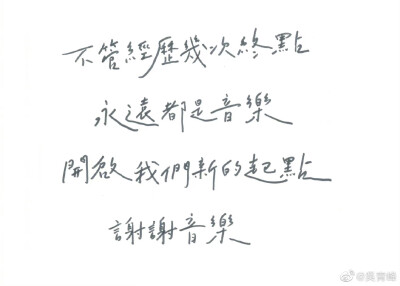 不管經歷幾次終點
永遠都是音樂
開啟我們新的起點
謝謝音樂
@吳青峰